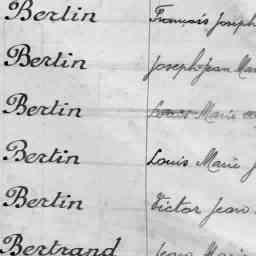 Bertin François Joseph
Bertin Joseph Jean Mar
Bertin Louis Marie
Bertin Louis Marie J
Bertin Victor Jean
Bertrand Jean Marie